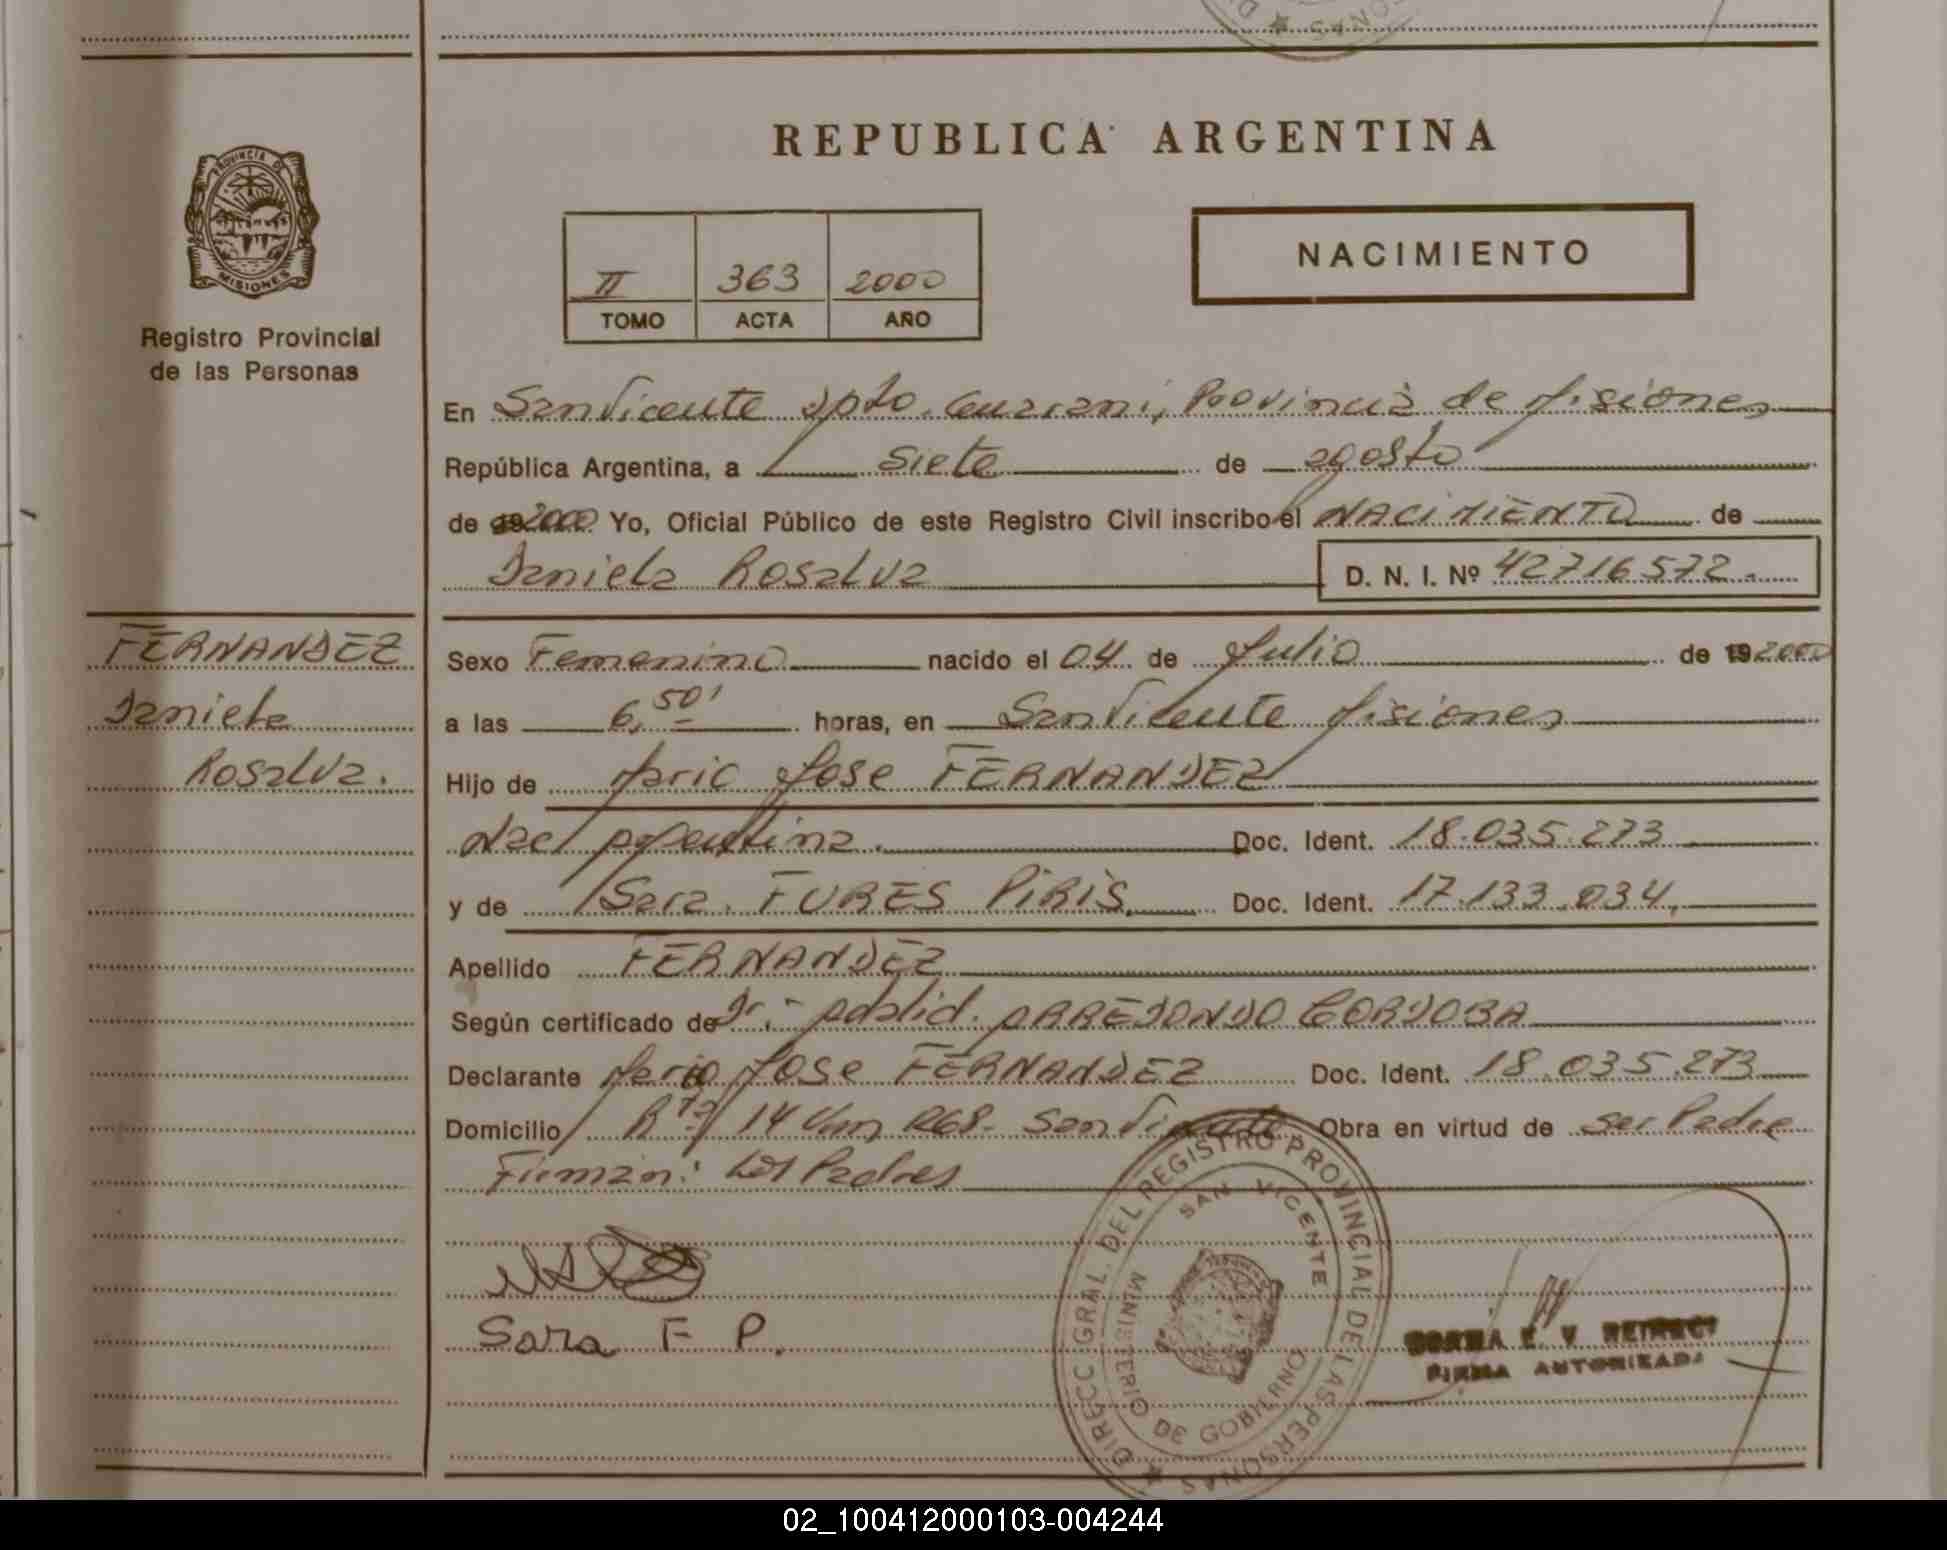 REPUBLICA ARGENTINA
PROVINCIA DE MISIONES
Registro Provincial
de las Personas
II 363 2000
TOMO ACTA AÑO
NACIMIENTO
En San Vicente Dpto. Guarani, Provincia de Misiones
República Argentina, a siete de agosto
de 2000 Yo, Oficial Público de este Registro Civil inscribo el NACIMIENTO de
Daniela Rosalva D. N. I. Nº 42716572.
FERNANDEZ
Daniela
Rosalva.
Sexo Femenino nacido el 04 de Julio de 19 2000
a las 6,50' horas, en San Vicente Misiones
Hijo de Mario Jose FERNANDEZ
Nac Argentina. Doc. Ident. 18.035.273
y de Sara FURES PIRIS. Doc. Ident. 17.133.034,
Apellido FERNANDEZ
Según certificado de Dr.: ARREDONDO CORDOBA
Declarante Mario Jose FERNANDEZ Doc. Ident. 18.035.273
Domicilio 14 San Vicente Obra en virtud de ser Padre
Firman: Los Padres
Sara F P.
DIRECC GRAL. DEL REGISTRO PROVINCIAL DE LAS PERSONAS
SAN VICENTE
MINISTERIO DE GOBIERNO
E. V.
FIRMA AUTORIZADA
02_100412000103-004244